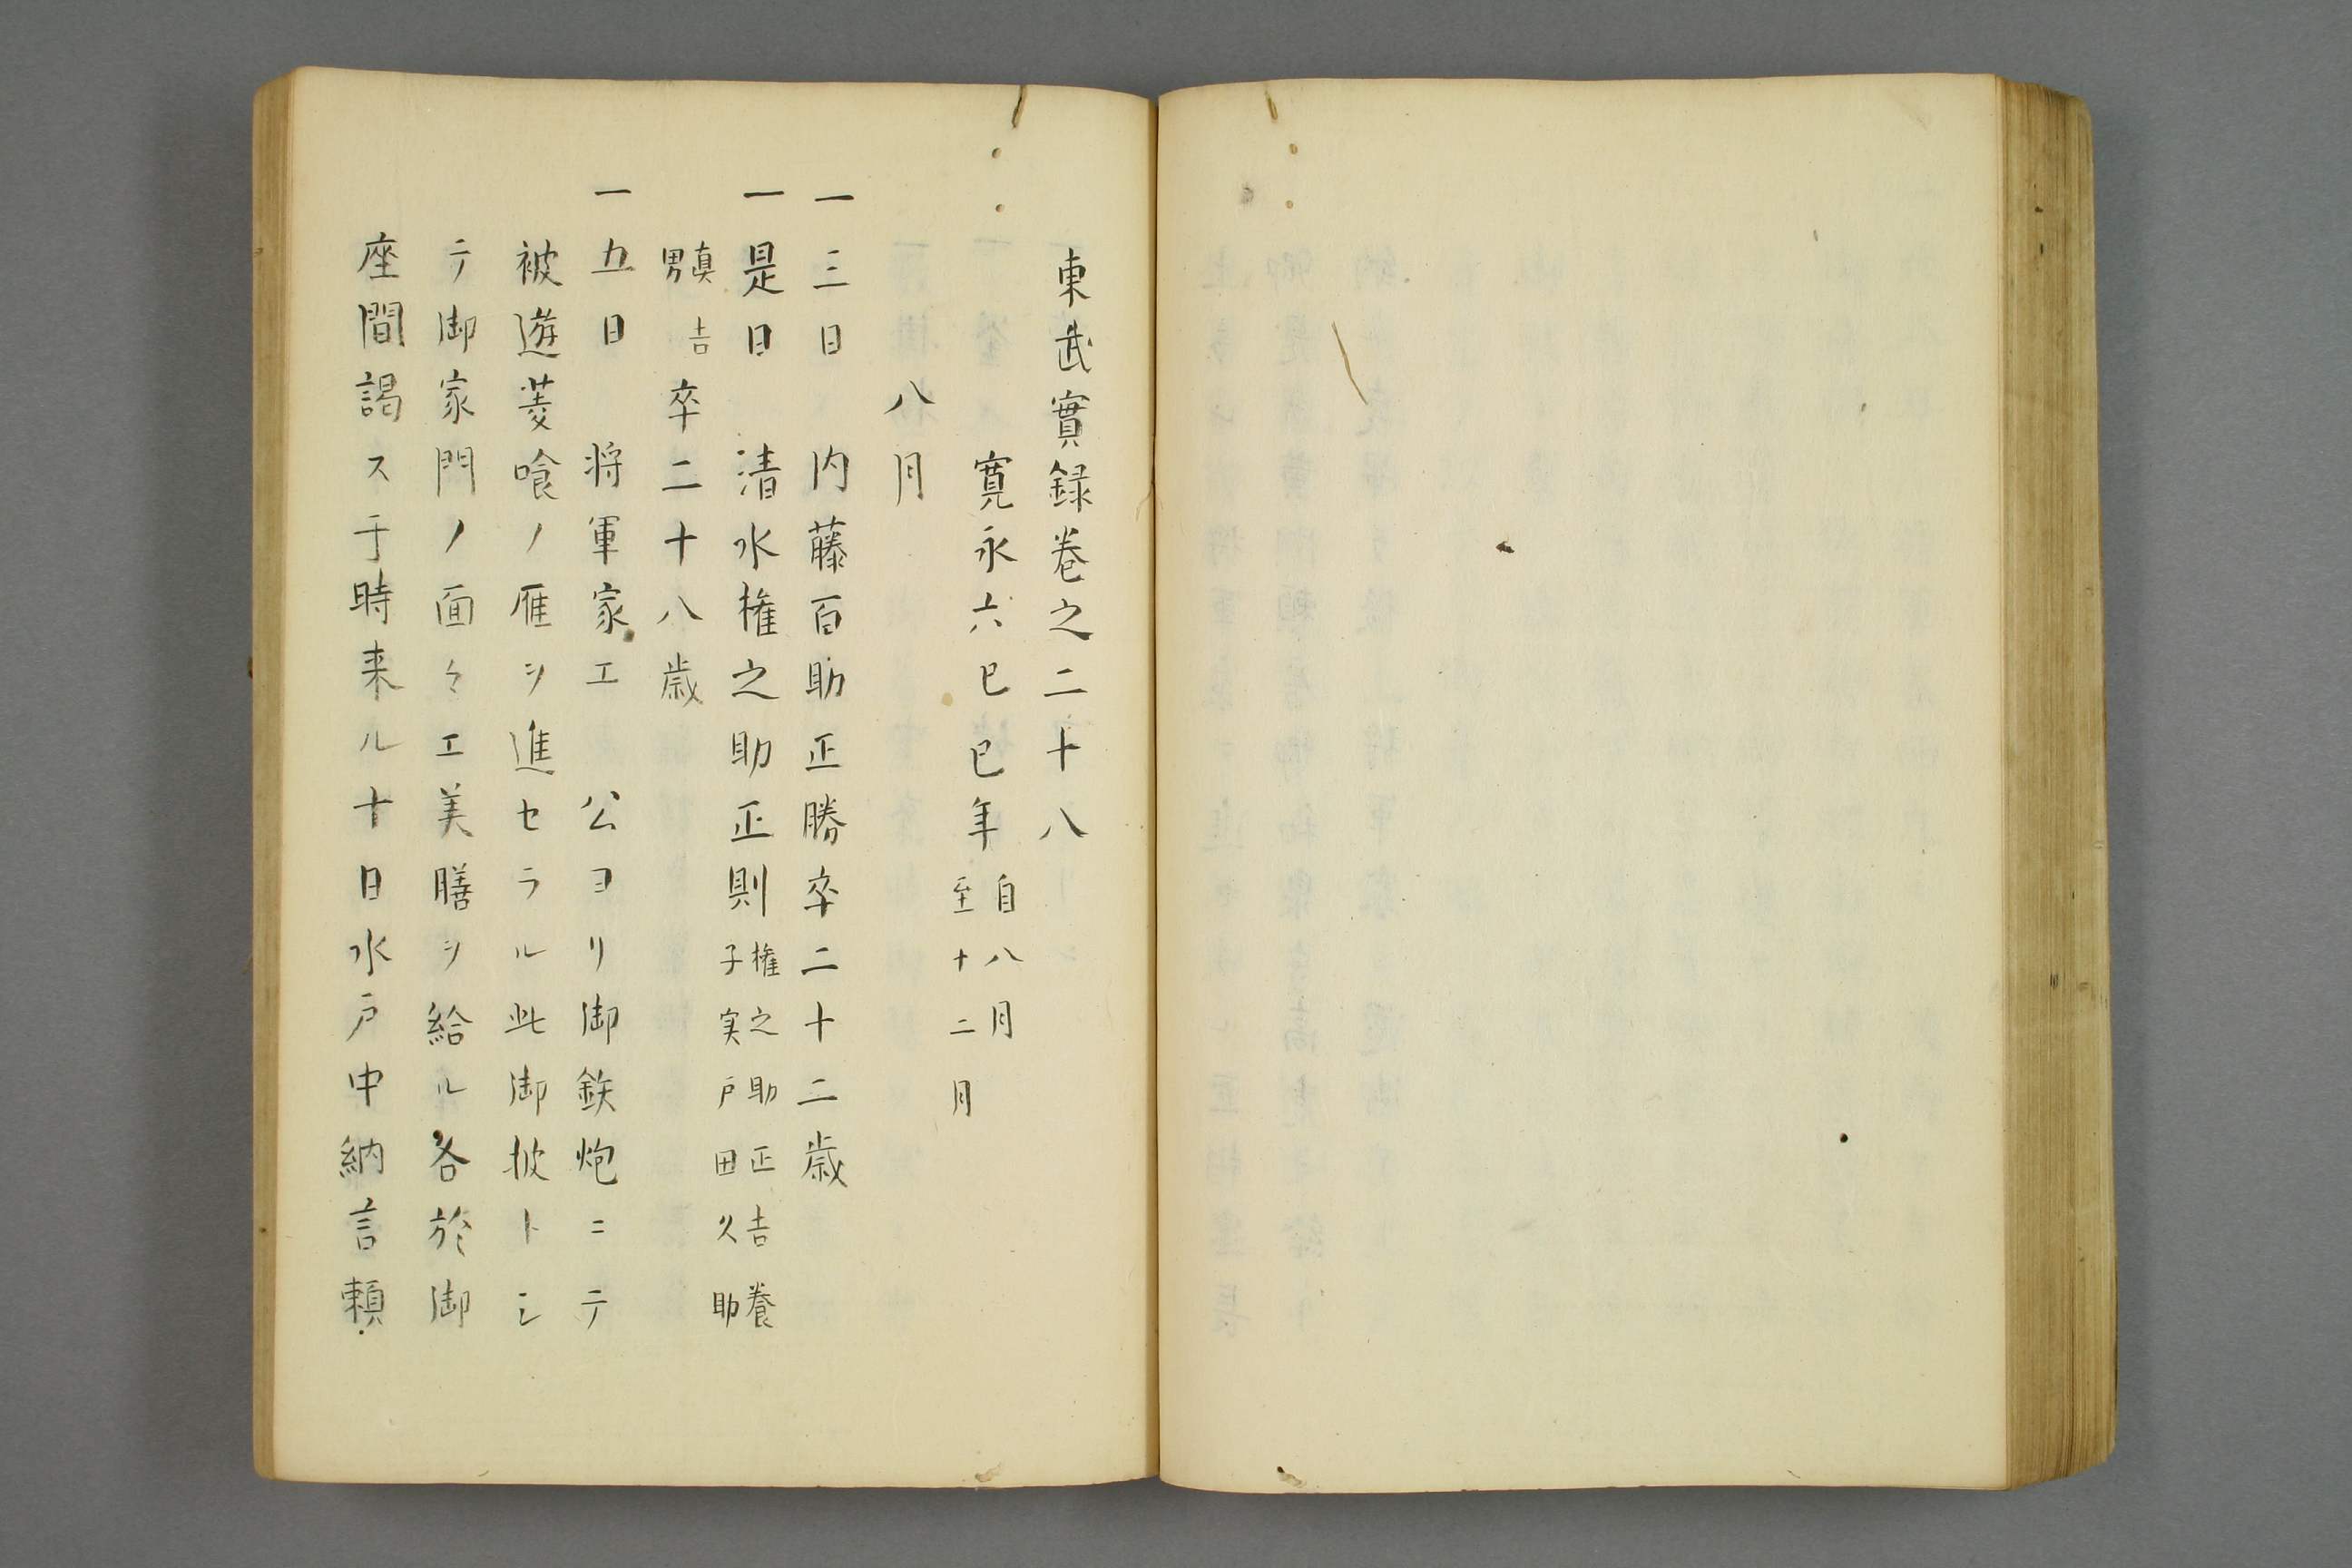 東武實録巻之二十八
寛永六己巳年自八月至十二月
八月
一三日　内藤百助正勝卒二十二歳
一是日　清水権之助正則権之助正吉養子実戸田久助
眞吉男卒二十八歳
一五日　将軍家エ　公ヨリ御鉄炮ニテ
被遊菱喰ノ雁ヲ進セラル此御披トシ
テ御家門ノ面々エ美膳ヲ給ル各於御
座間謁ス于時来ル十日水戸中納言頼